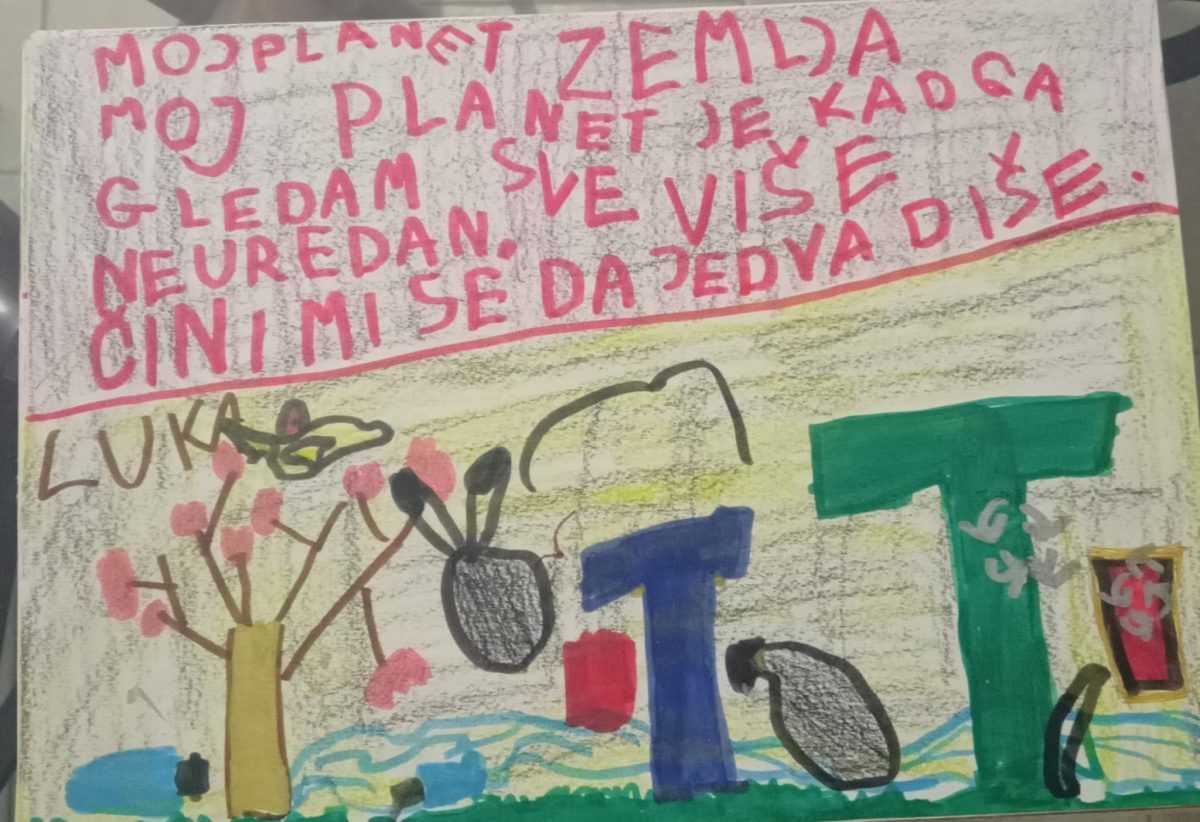 MOJ PLANET ZEMLJA
MOJ PLANET JE, KAD GA
GLEDAM SVE VIŠE
NEUREDAN.
ČINI MI SE DA JEDVA DIŠE.
LUKA